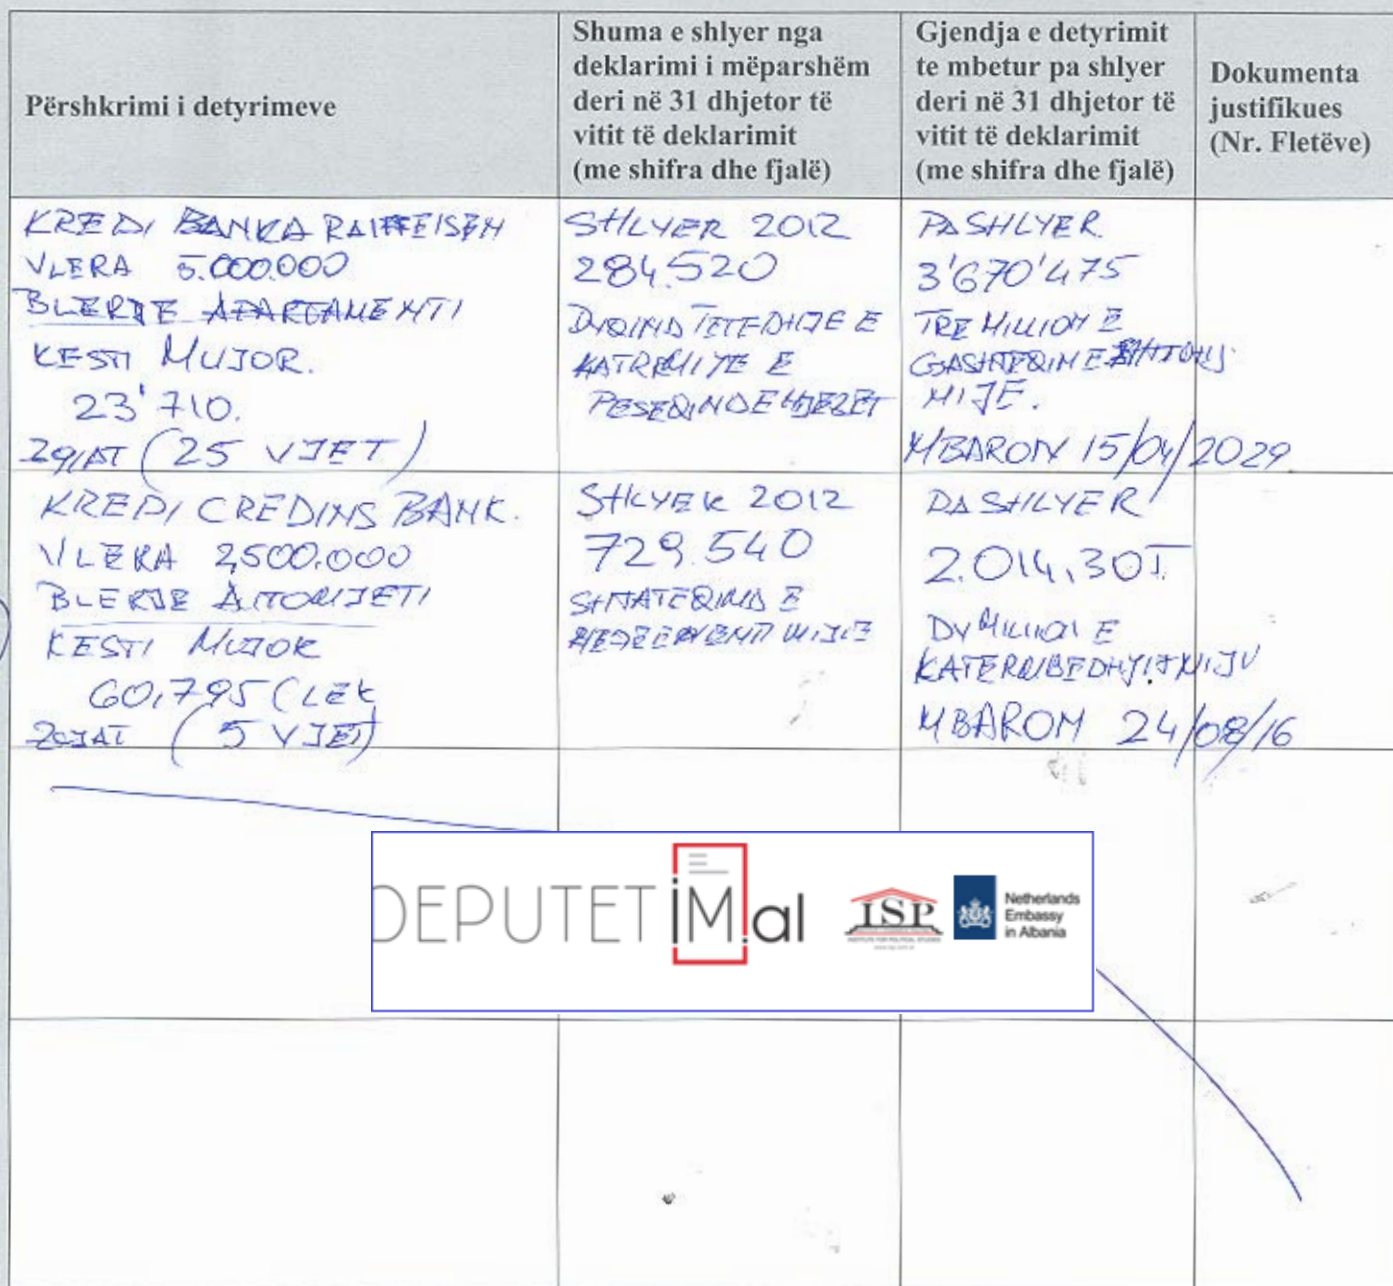 Përshkrimi i detyrimeve
Shuma e shlyer nga
deklarimi i mëparshëm
deri në 31 dhjetor të
vitit të deklarimit
(me shifra dhe fjalë)
Gjendja e detyrimit
te mbetur pa shlyer
deri në 31 dhjetor të
vitit të deklarimit
(me shifra dhe fjalë)
Dokumenta
justifikues
(Nr. Fletëve)
KREDI BANKA RAIFFEISEN
VLERA 5.000.000
BLERJE APARTAMENTI
KESTI MUJOR.
23'710.
ZGJAT (25 VJET)
SHLYER 2012
284.520
DYQIND TETEDHJE E
KATREMIJE E
PESEQINDE NJEZET
PASHLYER
3'670'475
TRE MILION E
GASHTEQIND E
MIJE.
MBARON 15/04/2029
KREDI CREDINS BANK.
VLERA 2,500.000
BLERJE AUTOMJETI
KESTI MUJOR
60,795 (LEK
ZGJAT (5 VJET)
SHLYER 2012
729.540
SHTATEQIND E
MIJE
PASHLYER
2.014,301
DY MILION E
MBARON 24/08/16
DEPUTETIM.al
ISP
INSTITUTE FOR POLITICAL STUDIES
Netherlands
Embassy
in Albania